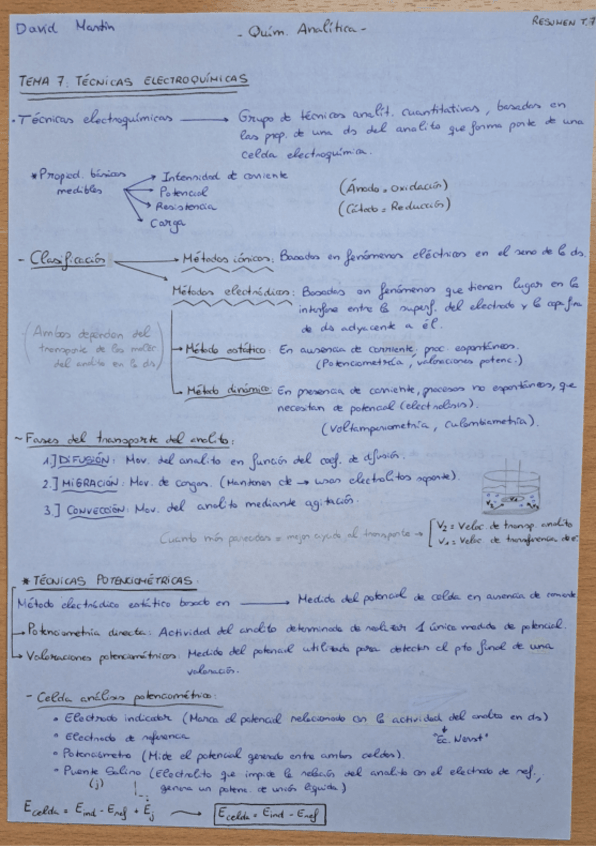 David Martín
- Quím. Analítica -
RESUMEN T.7
TEMA 7: TÉCNICAS ELECTROQUÍMICAS
· Técnicas electroquímicas → Grupo de técnicas analít. cuantitativas, basadas en
las prop. de una ds del analito que forma parte de una
celda electroquímica.
* Propied. básicas medibles
→ Intensidad de corriente
→ Potencial
→ Resistencia
→ Carga
(Ánodo = Oxidación)
(Cátodo = Reducción)
- Clasificación → Métodos iónicos: Basados en fenómenos eléctricos en el seno de la ds.
Métodos electródicos: Basados en fenómenos que tienen lugar en la
interfase entre la superf. del electrodo y la capa fina
de ds adyacente a él.
(Ambos dependen del
transporte de las moléc.
del analito en la ds)
→ Método estático: En ausencia de corriente, proc. espontáneos.
(Potenciometría, valoraciones potenc.)
→ Método dinámico: En presencia de corriente, procesos no espontáneos, que
necesitan de potencial (electrolisis).
(Voltamperiometría, Culombiometría).
- Fases del transporte del analito:
1.] DIFUSIÓN: Mov. del analito en función del coef. de difusión.
2.] MIGRACIÓN: Mov. de cargas. (Mantener cte → usar electrolitos soporte).
3.] CONVECCIÓN: Mov. del analito mediante agitación.
Cuanto más parecidas = mejor ayuda al transporte →
V2 = Veloc. de transp. analito
V1 = Veloc. de transferencia de e-
* TÉCNICAS POTENCIOMÉTRICAS.
Método electródico estático basado en → Medida del potencial de celda en ausencia de corriente
→ Potenciometría directa: Actividad del analito determinada de realizar 1 única medida de potencial.
→ Valoraciones potenciométricas: Medida del potencial utilizada para detectar el pto final de una
valoración.
- Celda análisis potenciométrico:
· Electrodo indicador (Marca el potencial relacionado con la actividad del analito en ds)
· Electrodo de referencia
"Ec. Nerst"
· Potenciómetro (Mide el potencial generado entre ambas celdas).
· Puente Salino (Electrolito que impide la relación del analito con el electrodo de ref.,
(j) genera un potenc. de unión líquida)
Ecelda = Eind - Eref + Ej → Ecelda = Eind - Eref